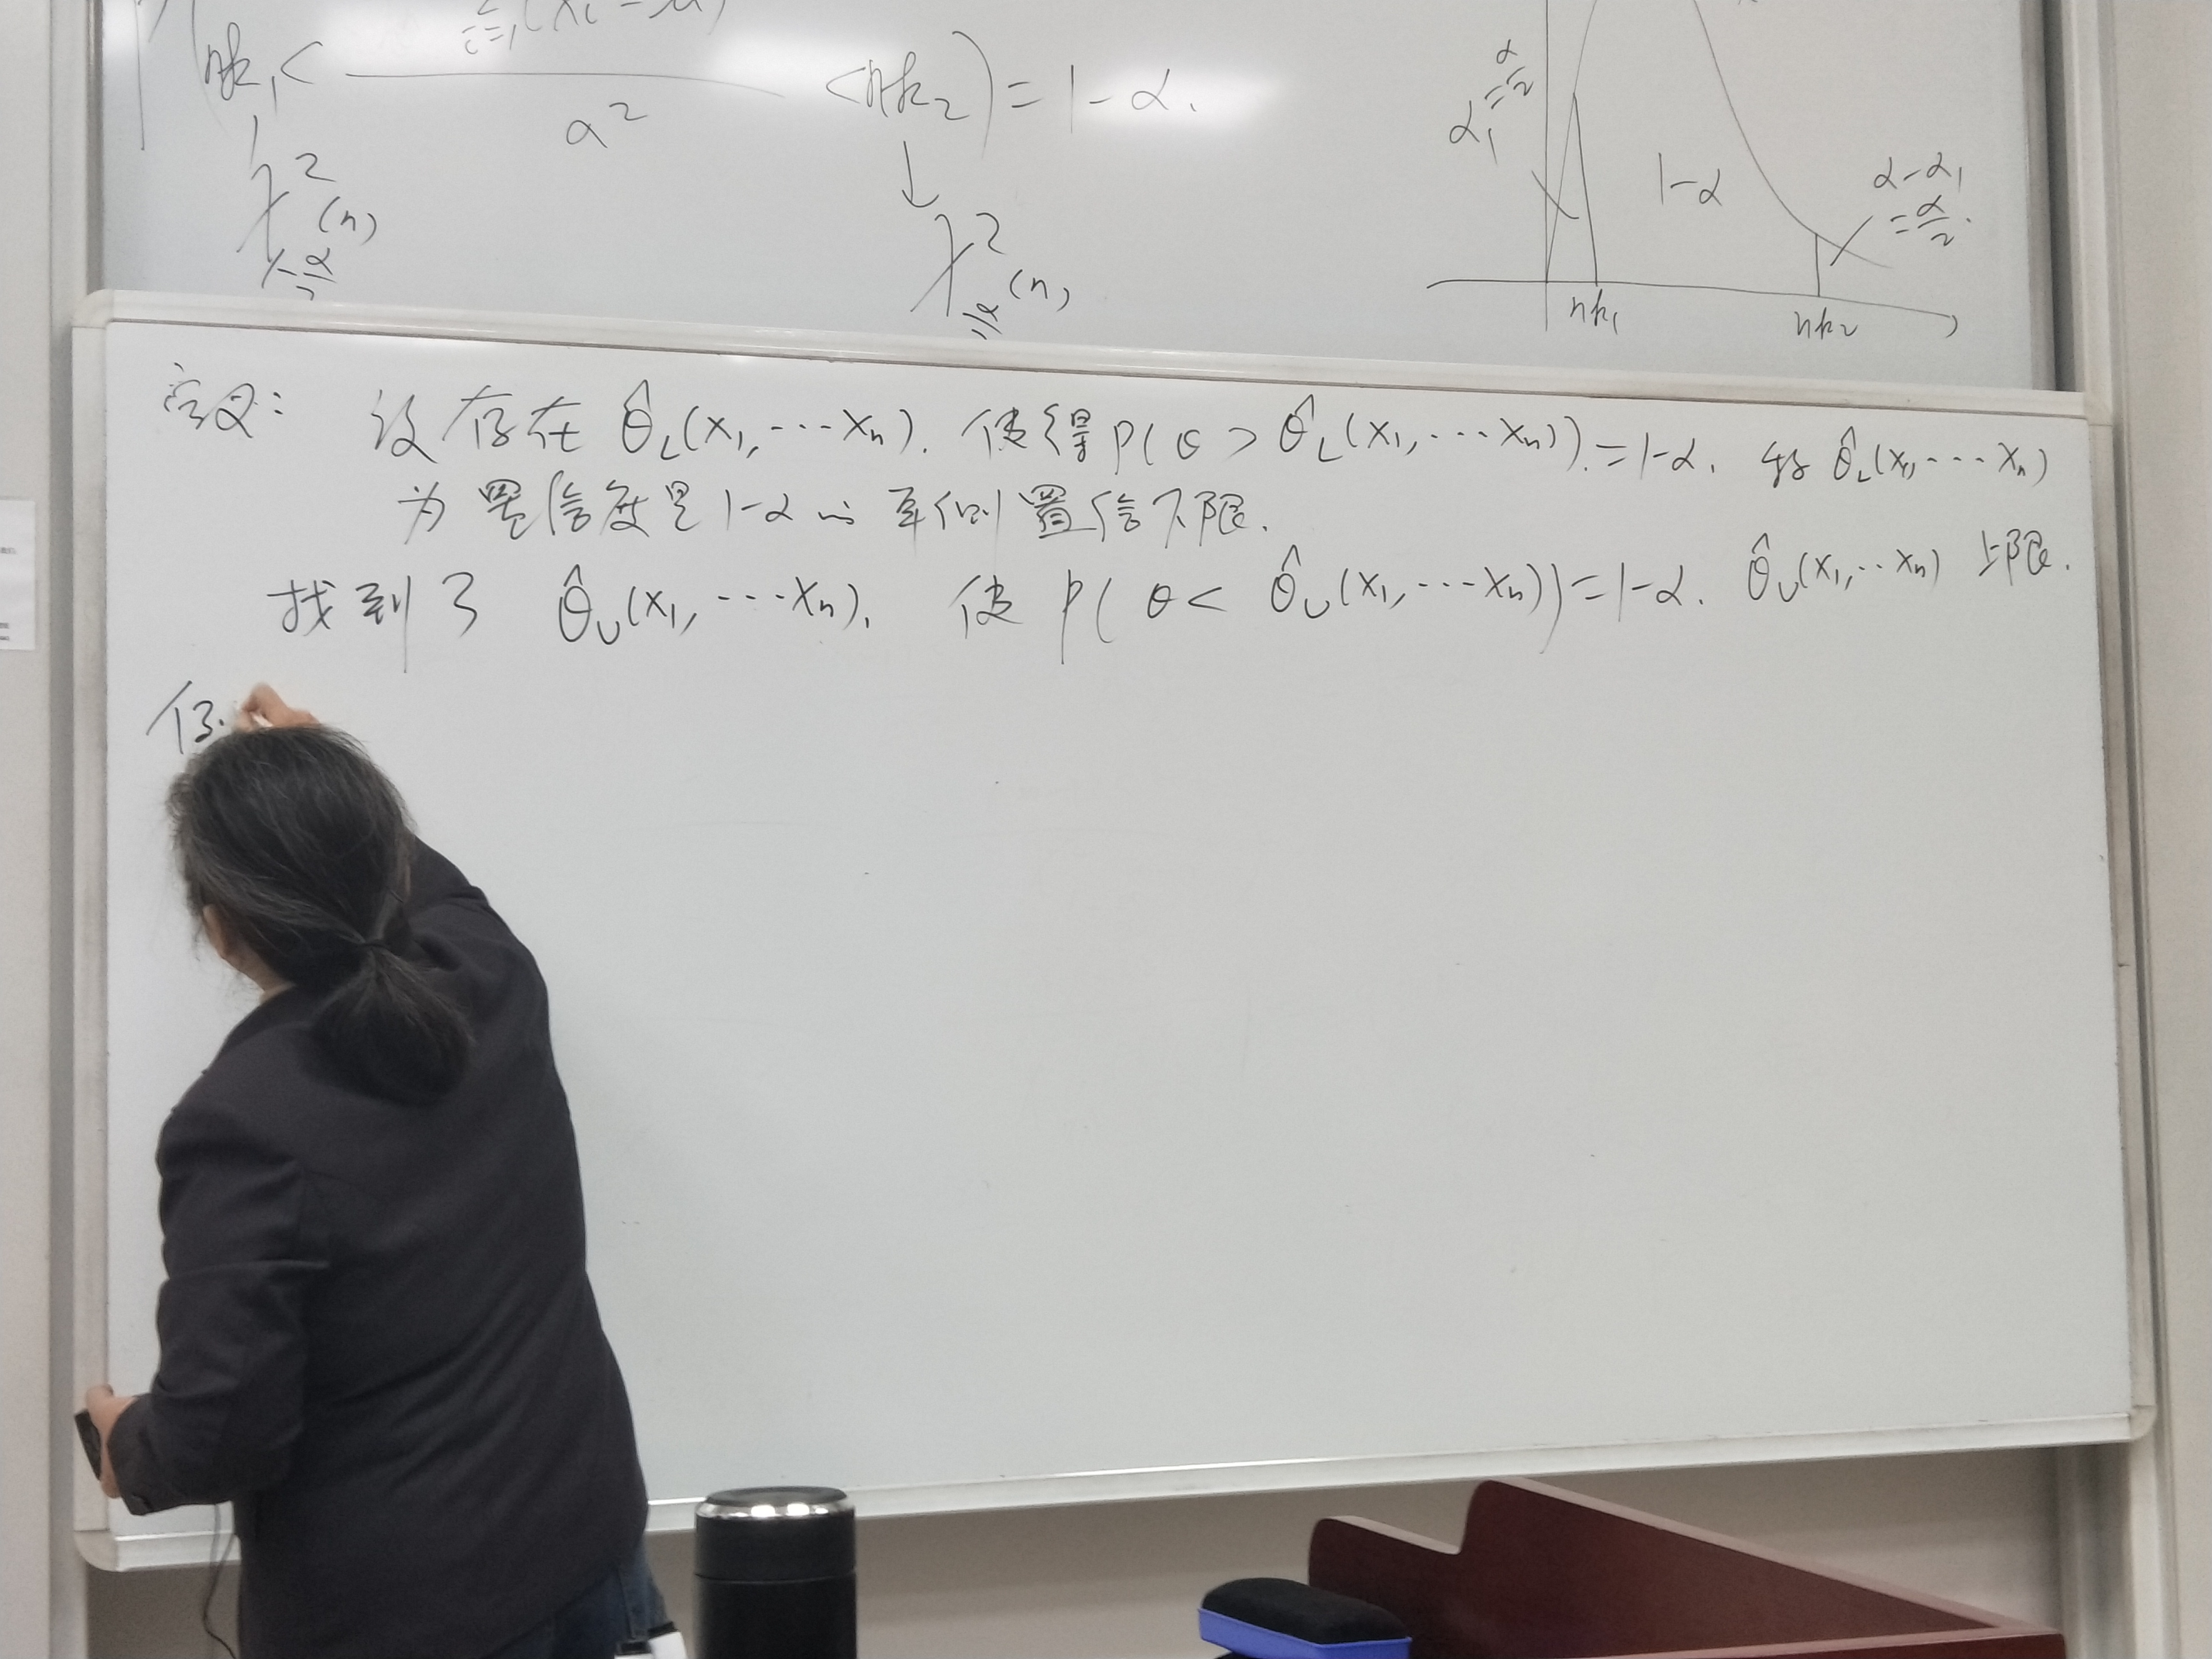 P(nk₁ < Σᵢ₌₁(xᵢ-μ) / a² < nk₂) = 1-α.
χ²_{1-α/2}(n) ↓ χ²_{α/2}(n)
α₁ = α/2
1-α
α-α₁ = α/2.
nk₁ nk₂
定义: 设存在 θ̂_L(x₁, ⋯xₙ). 使得 P(θ > θ̂_L(x₁, ⋯xₙ)). = 1-α. 称 θ̂_L(x₁, ⋯xₙ)
为置信度是 1-α 的单侧置信下限.
找到了 θ̂_U(x₁, ⋯xₙ), 使 P(θ < θ̂_U(x₁, ⋯xₙ)) = 1-α. θ̂_U(x₁, ⋯xₙ) 上限.